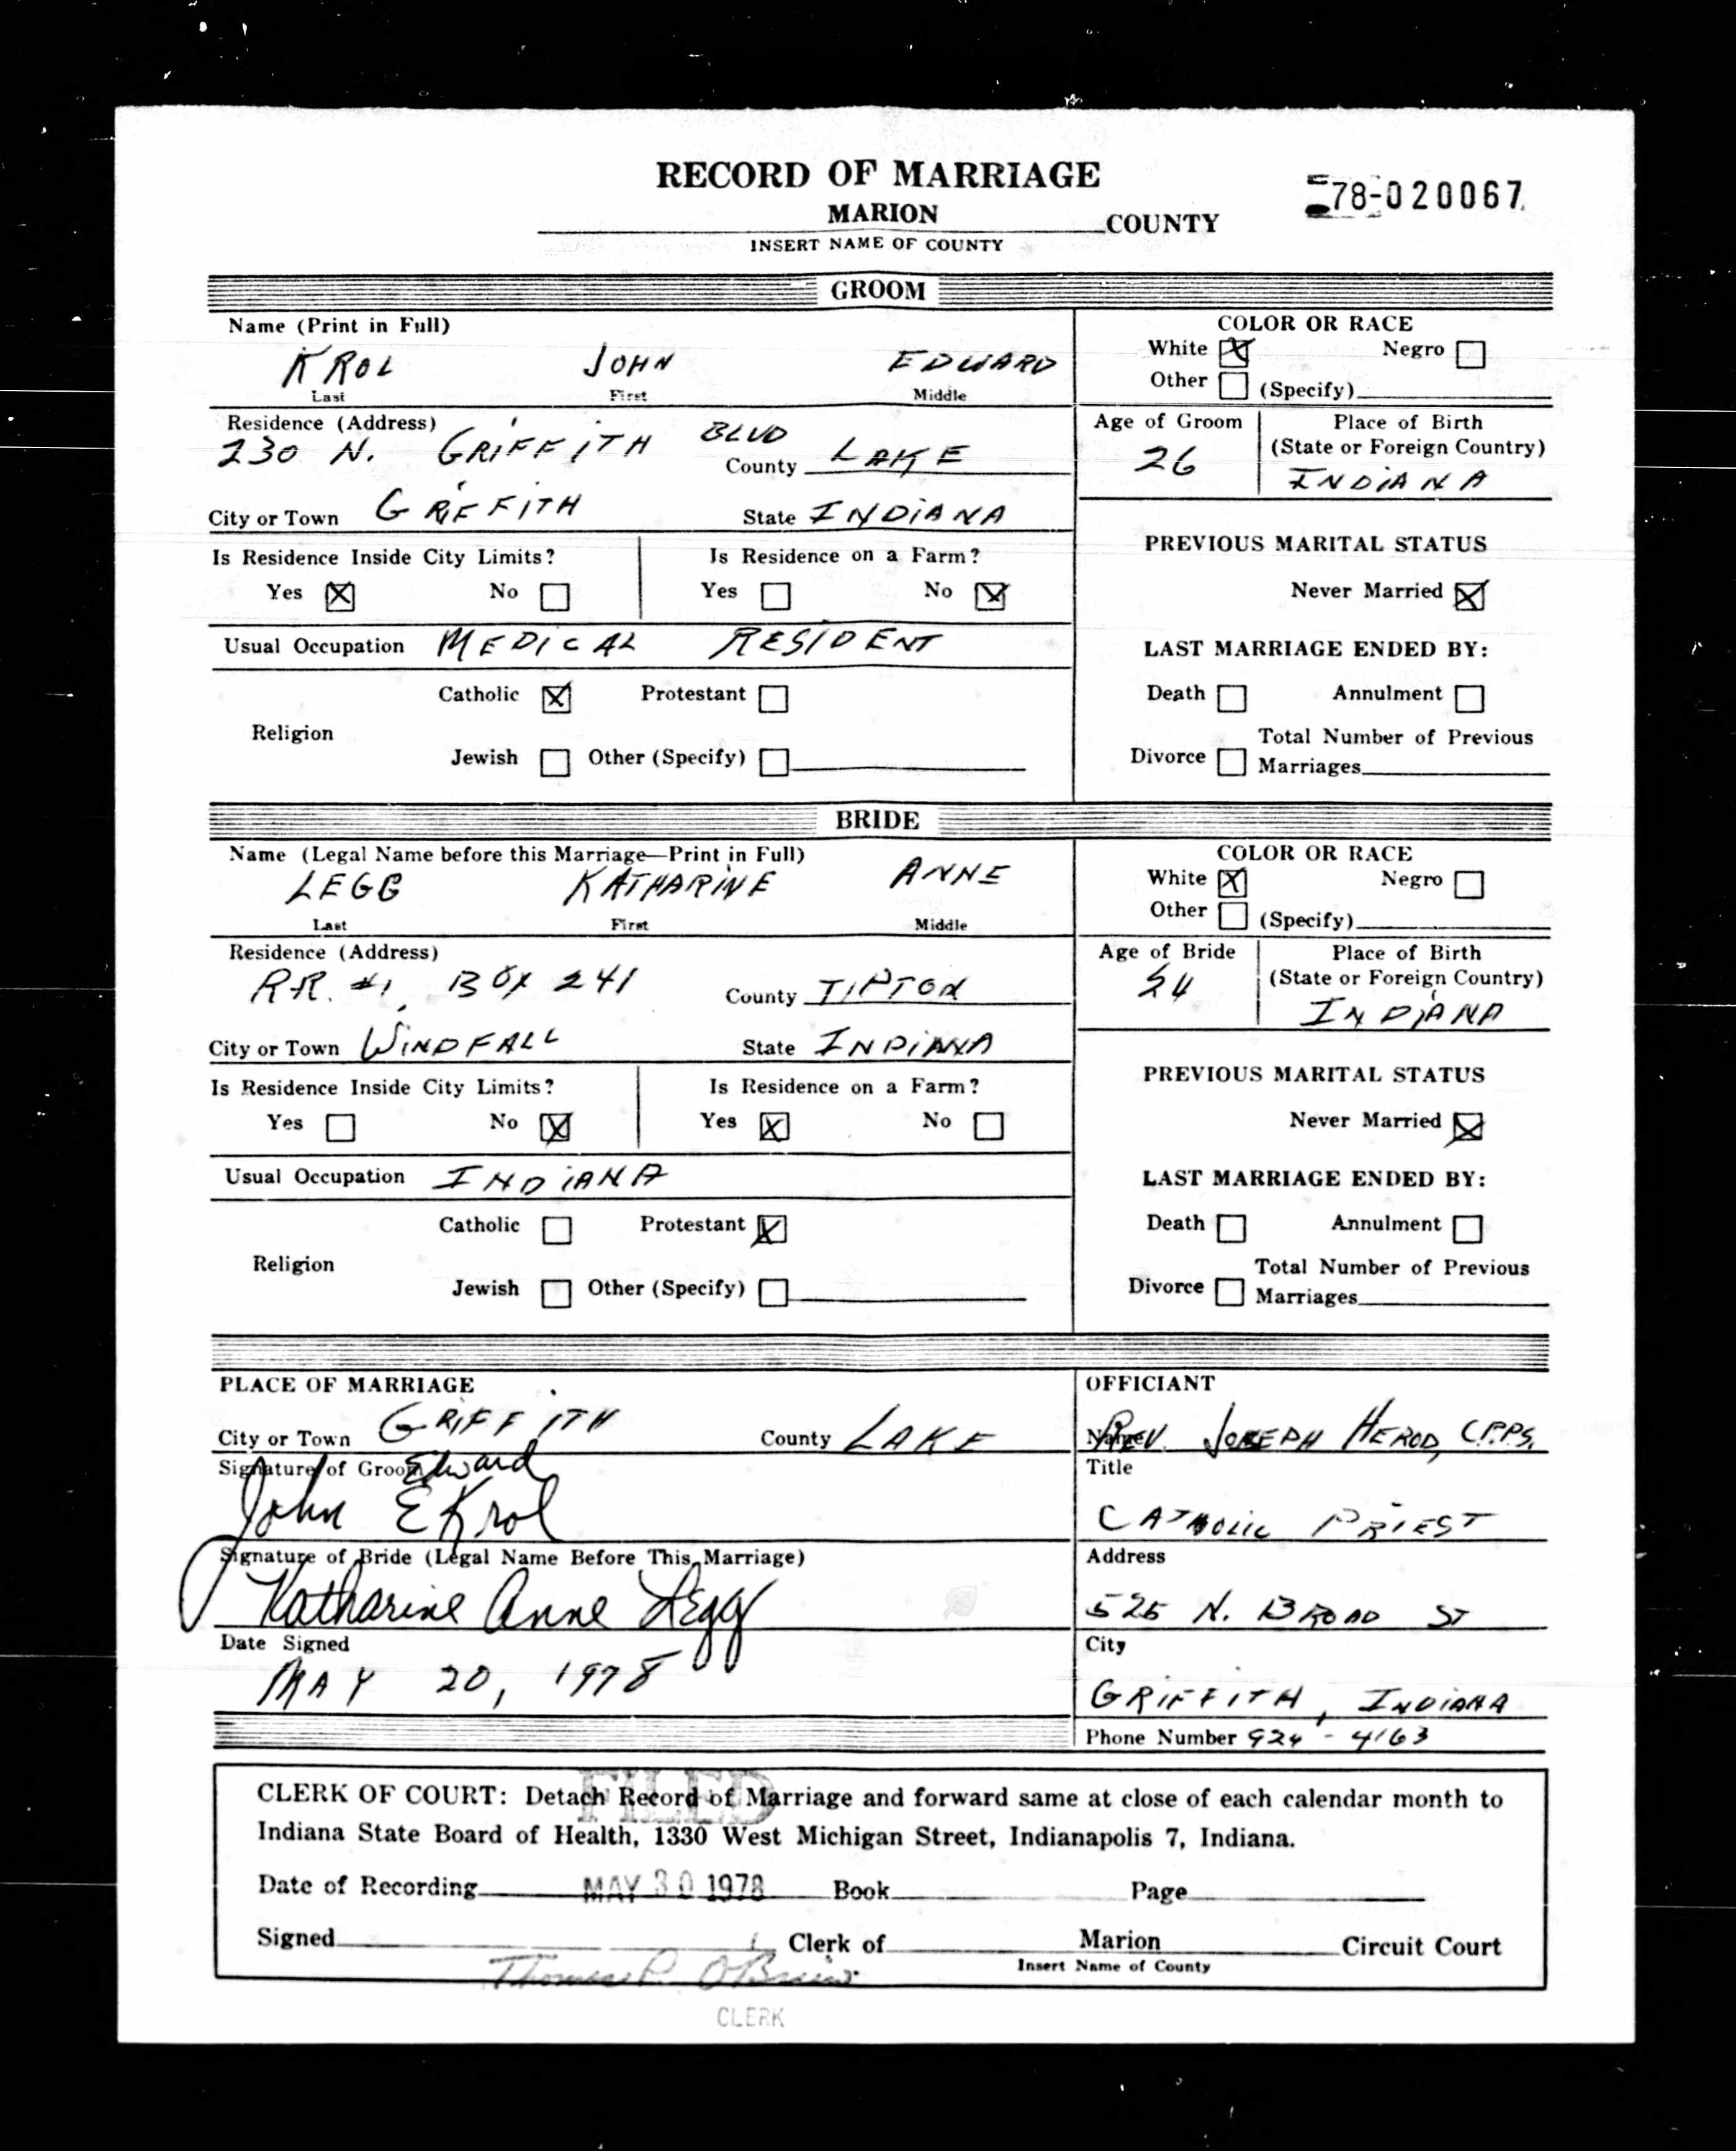 RECORD OF MARRIAGE
78-020067
MARION COUNTY
INSERT NAME OF COUNTY
GROOM
Name (Print in Full)
KROL JOHN EDWARD
Last First Middle
COLOR OR RACE
White X Negro
Other (Specify)
Residence (Address)
230 N. GRIFFITH BLVD
County LAKE
City or Town GRIFFITH State INDIANA
Age of Groom
26
Place of Birth
(State or Foreign Country)
INDIANA
Is Residence Inside City Limits? Is Residence on a Farm?
Yes X No Yes No X
PREVIOUS MARITAL STATUS
Never Married X
Usual Occupation MEDICAL RESIDENT
LAST MARRIAGE ENDED BY:
Catholic X Protestant
Religion
Jewish Other (Specify)
Death Annulment
Total Number of Previous
Divorce Marriages
BRIDE
Name (Legal Name before this Marriage—Print in Full)
LEGG KATHARINE ANNE
Last First Middle
COLOR OR RACE
White X Negro
Other (Specify)
Residence (Address)
RR. #1, BOX 241 County TIPTON
City or Town WINDFALL State INDIANA
Age of Bride
24
Place of Birth
(State or Foreign Country)
INDIANA
Is Residence Inside City Limits? Is Residence on a Farm?
Yes No X Yes X No
PREVIOUS MARITAL STATUS
Never Married X
Usual Occupation INDIANA
LAST MARRIAGE ENDED BY:
Catholic Protestant X
Religion
Jewish Other (Specify)
Death Annulment
Total Number of Previous
Divorce Marriages
PLACE OF MARRIAGE
City or Town GRIFFITH County LAKE
Signature of Groom
Edward
John E Krol
Signature of Bride (Legal Name Before This Marriage)
Katharine Anne Legg
Date Signed
MAY 20, 1978
OFFICIANT
Name REV. JOSEPH HEROD, C.PP.S.
Title
CATHOLIC PRIEST
Address
525 N. BROAD ST
City
GRIFFITH, INDIANA
Phone Number 924-4163
FILED
CLERK OF COURT: Detach Record of Marriage and forward same at close of each calendar month to
Indiana State Board of Health, 1330 West Michigan Street, Indianapolis 7, Indiana.
Date of Recording MAY 30 1978 Book Page
Signed Clerk of Marion Circuit Court
Insert Name of County
Thomas P. O'Brien
CLERK